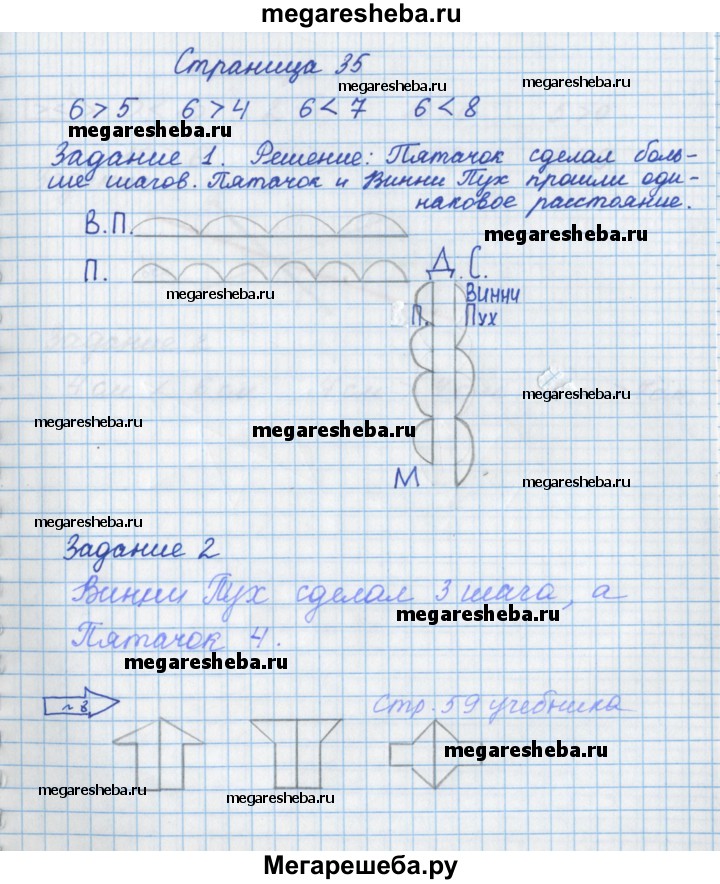 megaresheba.ru
Страница 35
megaresheba.ru
megaresheba.ru
6 > 5 6 > 4 6 < 7 6 < 8
megaresheba.ru
Задание 1. Решение: Пятачок сделал боль-
ше шагов. Пятачок и Винни Пух прошли оди-
наковое расстояние.
В.П.
megaresheba.ru
П.
Д. С.
megaresheba.ru
Винни
П. Пух
megaresheba.ru
megaresheba.ru
megaresheba.ru
М
megaresheba.ru
megaresheba.ru
Задание 2
Винни Пух сделал 3 шага, а
megaresheba.ru
Пятачок 4.
megaresheba.ru
Стр. 59 учебника
megaresheba.ru
megaresheba.ru
megaresheba.ru
Мегарешеба.ру